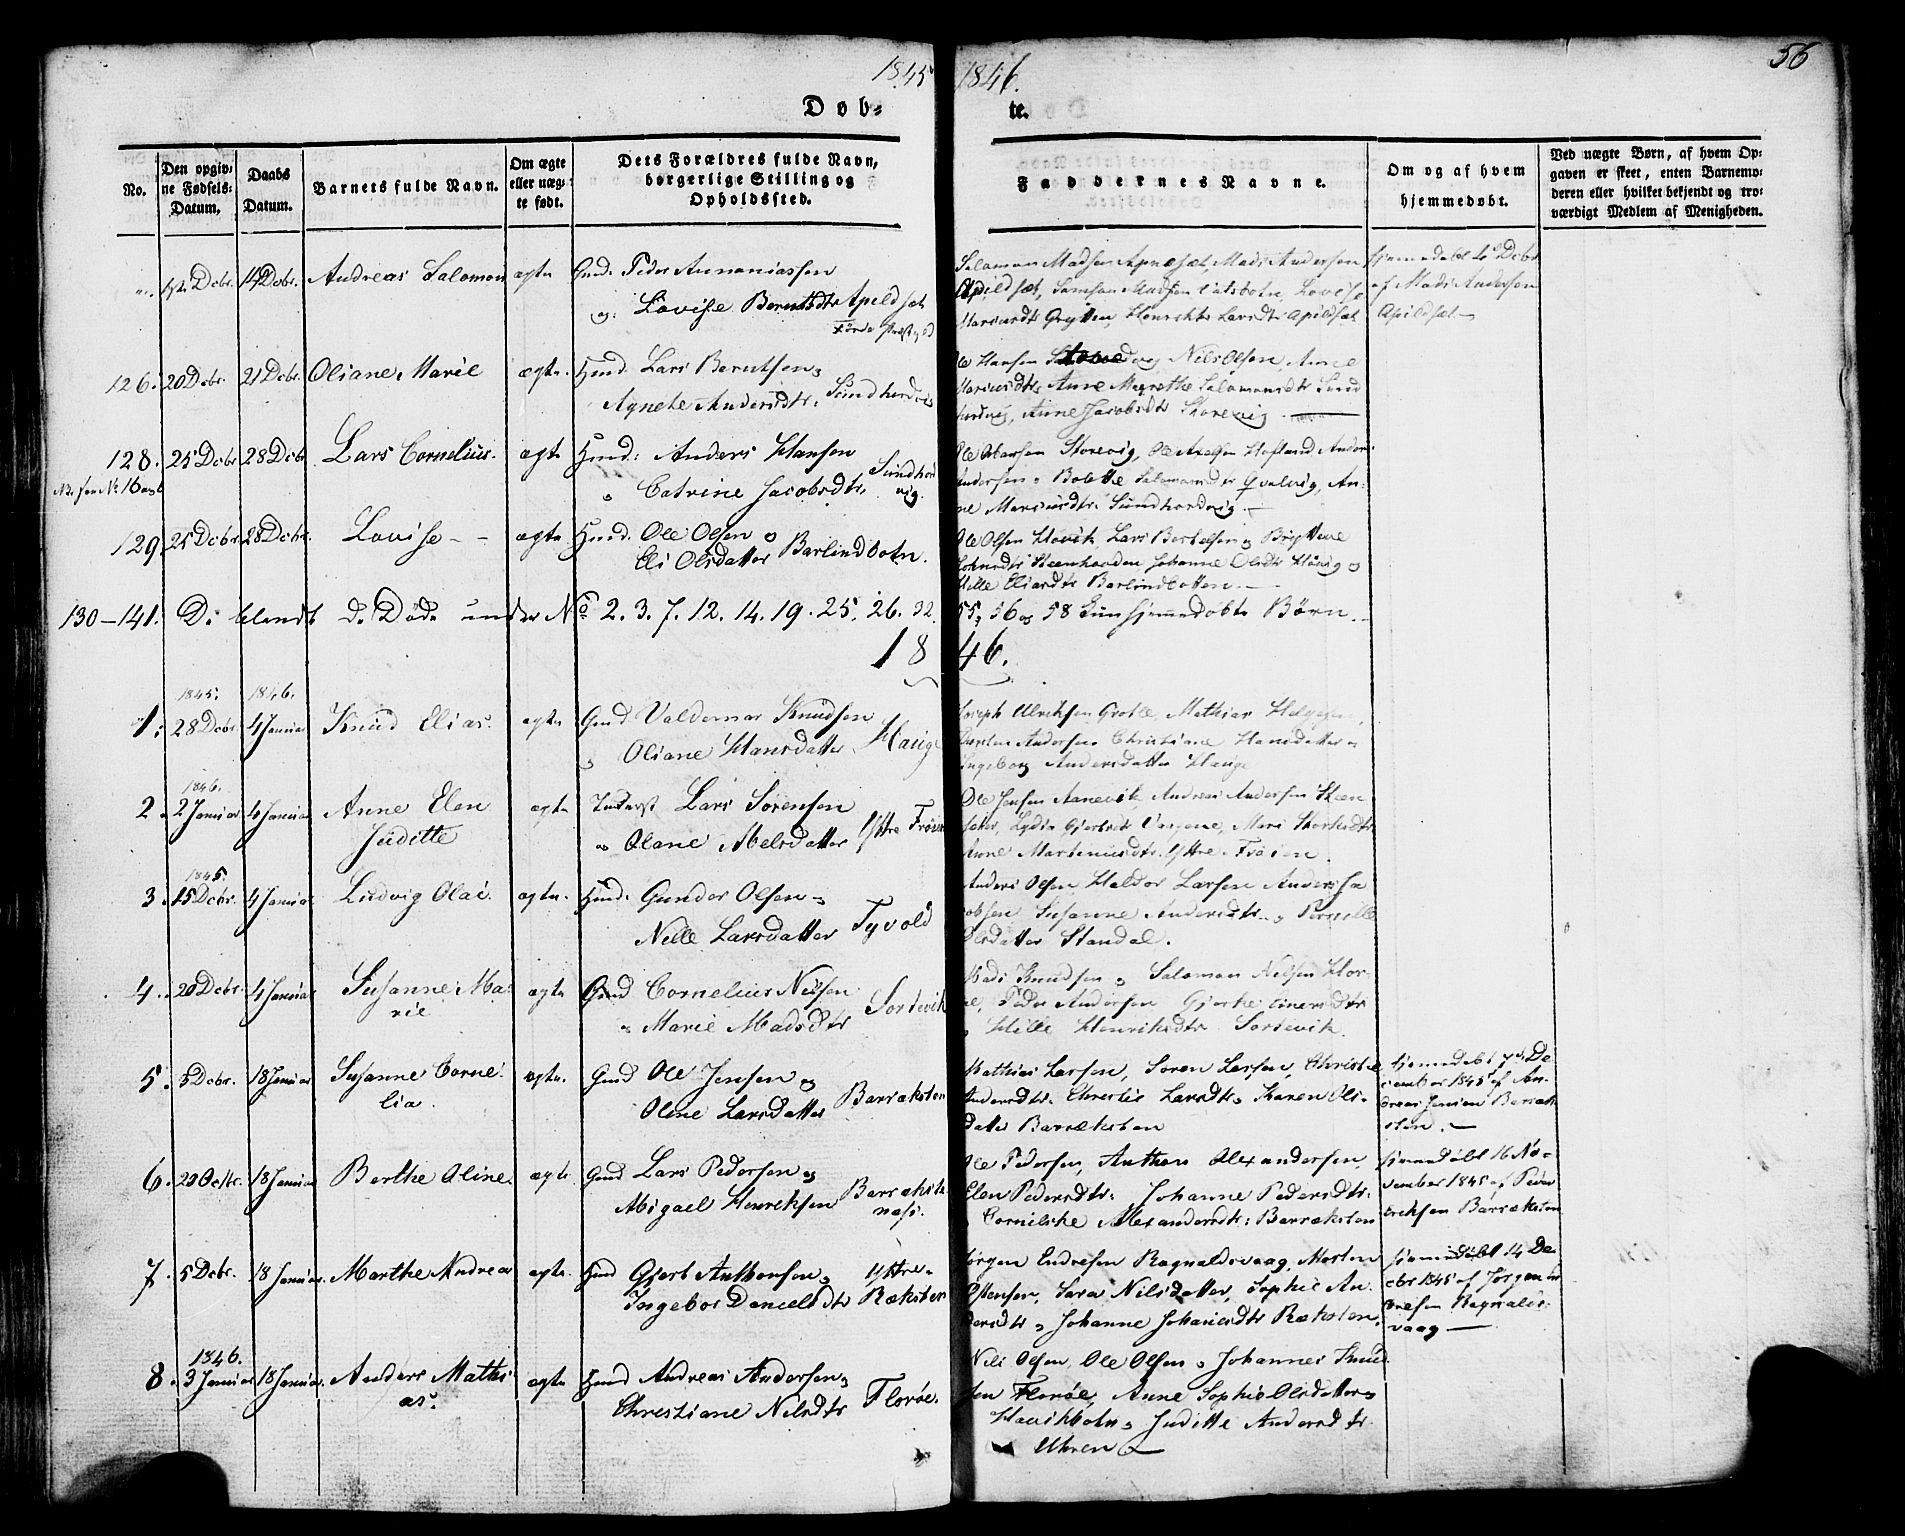 1845 1846. 56
Døb- te.
No. Den opgivne Fødsels-Datum. Daabs Datum. Barnets fulde Navn. Om ægte eller uægte født. Dets Forældres fulde Navn, borgerlige Stilling og Opholdssted. Faddernes Navne. Om og af hvem hjemmedøbt. Ved uægte Børn, af hvem Opgaven er skeet, enten Barnemoderen eller hvilket bekjendt og troværdigt Medlem af Menigheden.
Dcbr. Dcbr. Andreas Salomon ægte Gmd. Peder Annaniassen
og Lovise Berntsdtr Apeldsæt
Salamon Madsen Mads Andersen
Apildsæt, Samson Madsen Lovise
Mariusdtr Grytten, Larsdtr Apildsæt
hjemmedøbt Dcbr
af Mads Andersen
Apildsæt
126. 20 Dcbr. 21 Dcbr. Oliane Marie ægte. Hmd. Lars Berntsen
Agnete Andersdtr. Sundhordvig
Ole Hansen Nils Olsen, Anne
Mariusdtr. Anne Margrethe Salamonsdtr Sund
hordvig, Anne Jacobsdtr Storevig
128. 25 Dcbr 28 Dcbr Lars Cornelius. ægte Hmd: Anders Hansen
Catrine Jacobsdtr. Sundhordvig.
Ole Hansen Storevig, Ole Axelsen Hofland, Anders
Andersen, Bolette Salamonsdtr Qvalvig, An-
ne Mariusdtr. Sundhordvig.
129. 25 Dcbr. 28 Dcbr. Lovise - - ægte Hmd. Ole Olsen og
Eli Olsdatter Barlindbotn.
Ole Olsen Hovik, Lars Bertelsen, Bryttene
Johnsdtr Steenhovden Johanne Olsdtr Hovig og
Hille Eliasdtr Barlindbotten.
130-141. De blandt de Døde under No 2. 3. 7. 12. 14. 19. 25. 26. 32. 55, 56 og 58 kun hjemmedøbte Børn.
1846.
1. 1845. 28 Dcbr. 1846. 4 Januar Knud Elias. ægte Gmd Valdemar Knudsen
Oliane Hansdatter Hauge
Joseph Ulriksen Grotle, Mathias Helgesen,
Andersen Christiane Hansdatter
Ingeborg Andersdatter Hauge
2. 1846. 2 Januar 4 Januar Anne Elen
Juditte ægte Inderst Lars Sørensen
Olane Abelsdatter Yttre Frøien
Ole Jensen Aarevik, Andreas Andersen Steen
Lydia Gjertsdtr Mari
Anne Martenusdtr. Yttre Frøien.
3. 1845. 15 Dcbr. 4 Januar Ludvig Olai. ægte. Hmd. Gunder Olsen
Nille Larsdatter Tyvold
Anders Olsen Haldor Larsen Anders Ja
cobsen Susanne Andersdtr. Pernille
Olsdatter Standal.
4. 20 Dcbr. 4 Januar Susanne Ma-
rie ægte Gmd Cornelius Nilsen
Marie Madsdtr Sortevik
Mads Knudsen Salamon Nilsen Hor-
ne, Peder Andersen Gjerke Einersdtr
Hille Henriksdtr Sortevik.
5. 5 Dcbr. 18 Januar Susanne Corne-
lia. ægte. Gmd Ole Jensen og
Oline Larsdatter Barræksten
Mathias Larsen, Søren Larsen, Christie
Andersdtr. Christie Larsdtr, Karen Ols-
datter Barræksten
hjemmedøbt 7de De-
cember 1845 af An-
dreas Jensen Barræk-
sten.
6. 20 Octbr. 18 Januar Berthe Oline. ægte Gmd Lars Pedersen og
Abigael Henriksen Barrækste-
næs.
Ole Pedersen, Anthon Alexandersen,
Elen Pedersdtr. Johanne Pedersdtr.
Cornilske Alexandersdtr: Barræksten
hjemmedøbt 16 No-
vember 1845 af Peder
Barræksten
7. 5 Dcbr. 18 Januar. Marthe Andrea ægte. Hmd Gjert Anthonsen
Ingebor Danielsdtr Yttre-
Ræksten
Jørgen Endresen Ragnaldsvaag, Morten
Sara Nilsdatter, Sophie An-
dersdtr, Johanne Johannesdtr Ræksten.
hjemmedøbt 14 De-
cbr 1845 af Jørgen En
dresen Ragnalds-
vaag
8. 1846. 3 Januar 18 Januar. Anders Mathi-
as. ægte Hmd Andreas Andersen
Christiane Nilsdtr Florøe.
Nils Olsen, Ole Olsen, Johannes Knud
sen Florøe, Anne Sophie Olsdatter
Havikbotn, Juditte Andersdtr.
Uhren